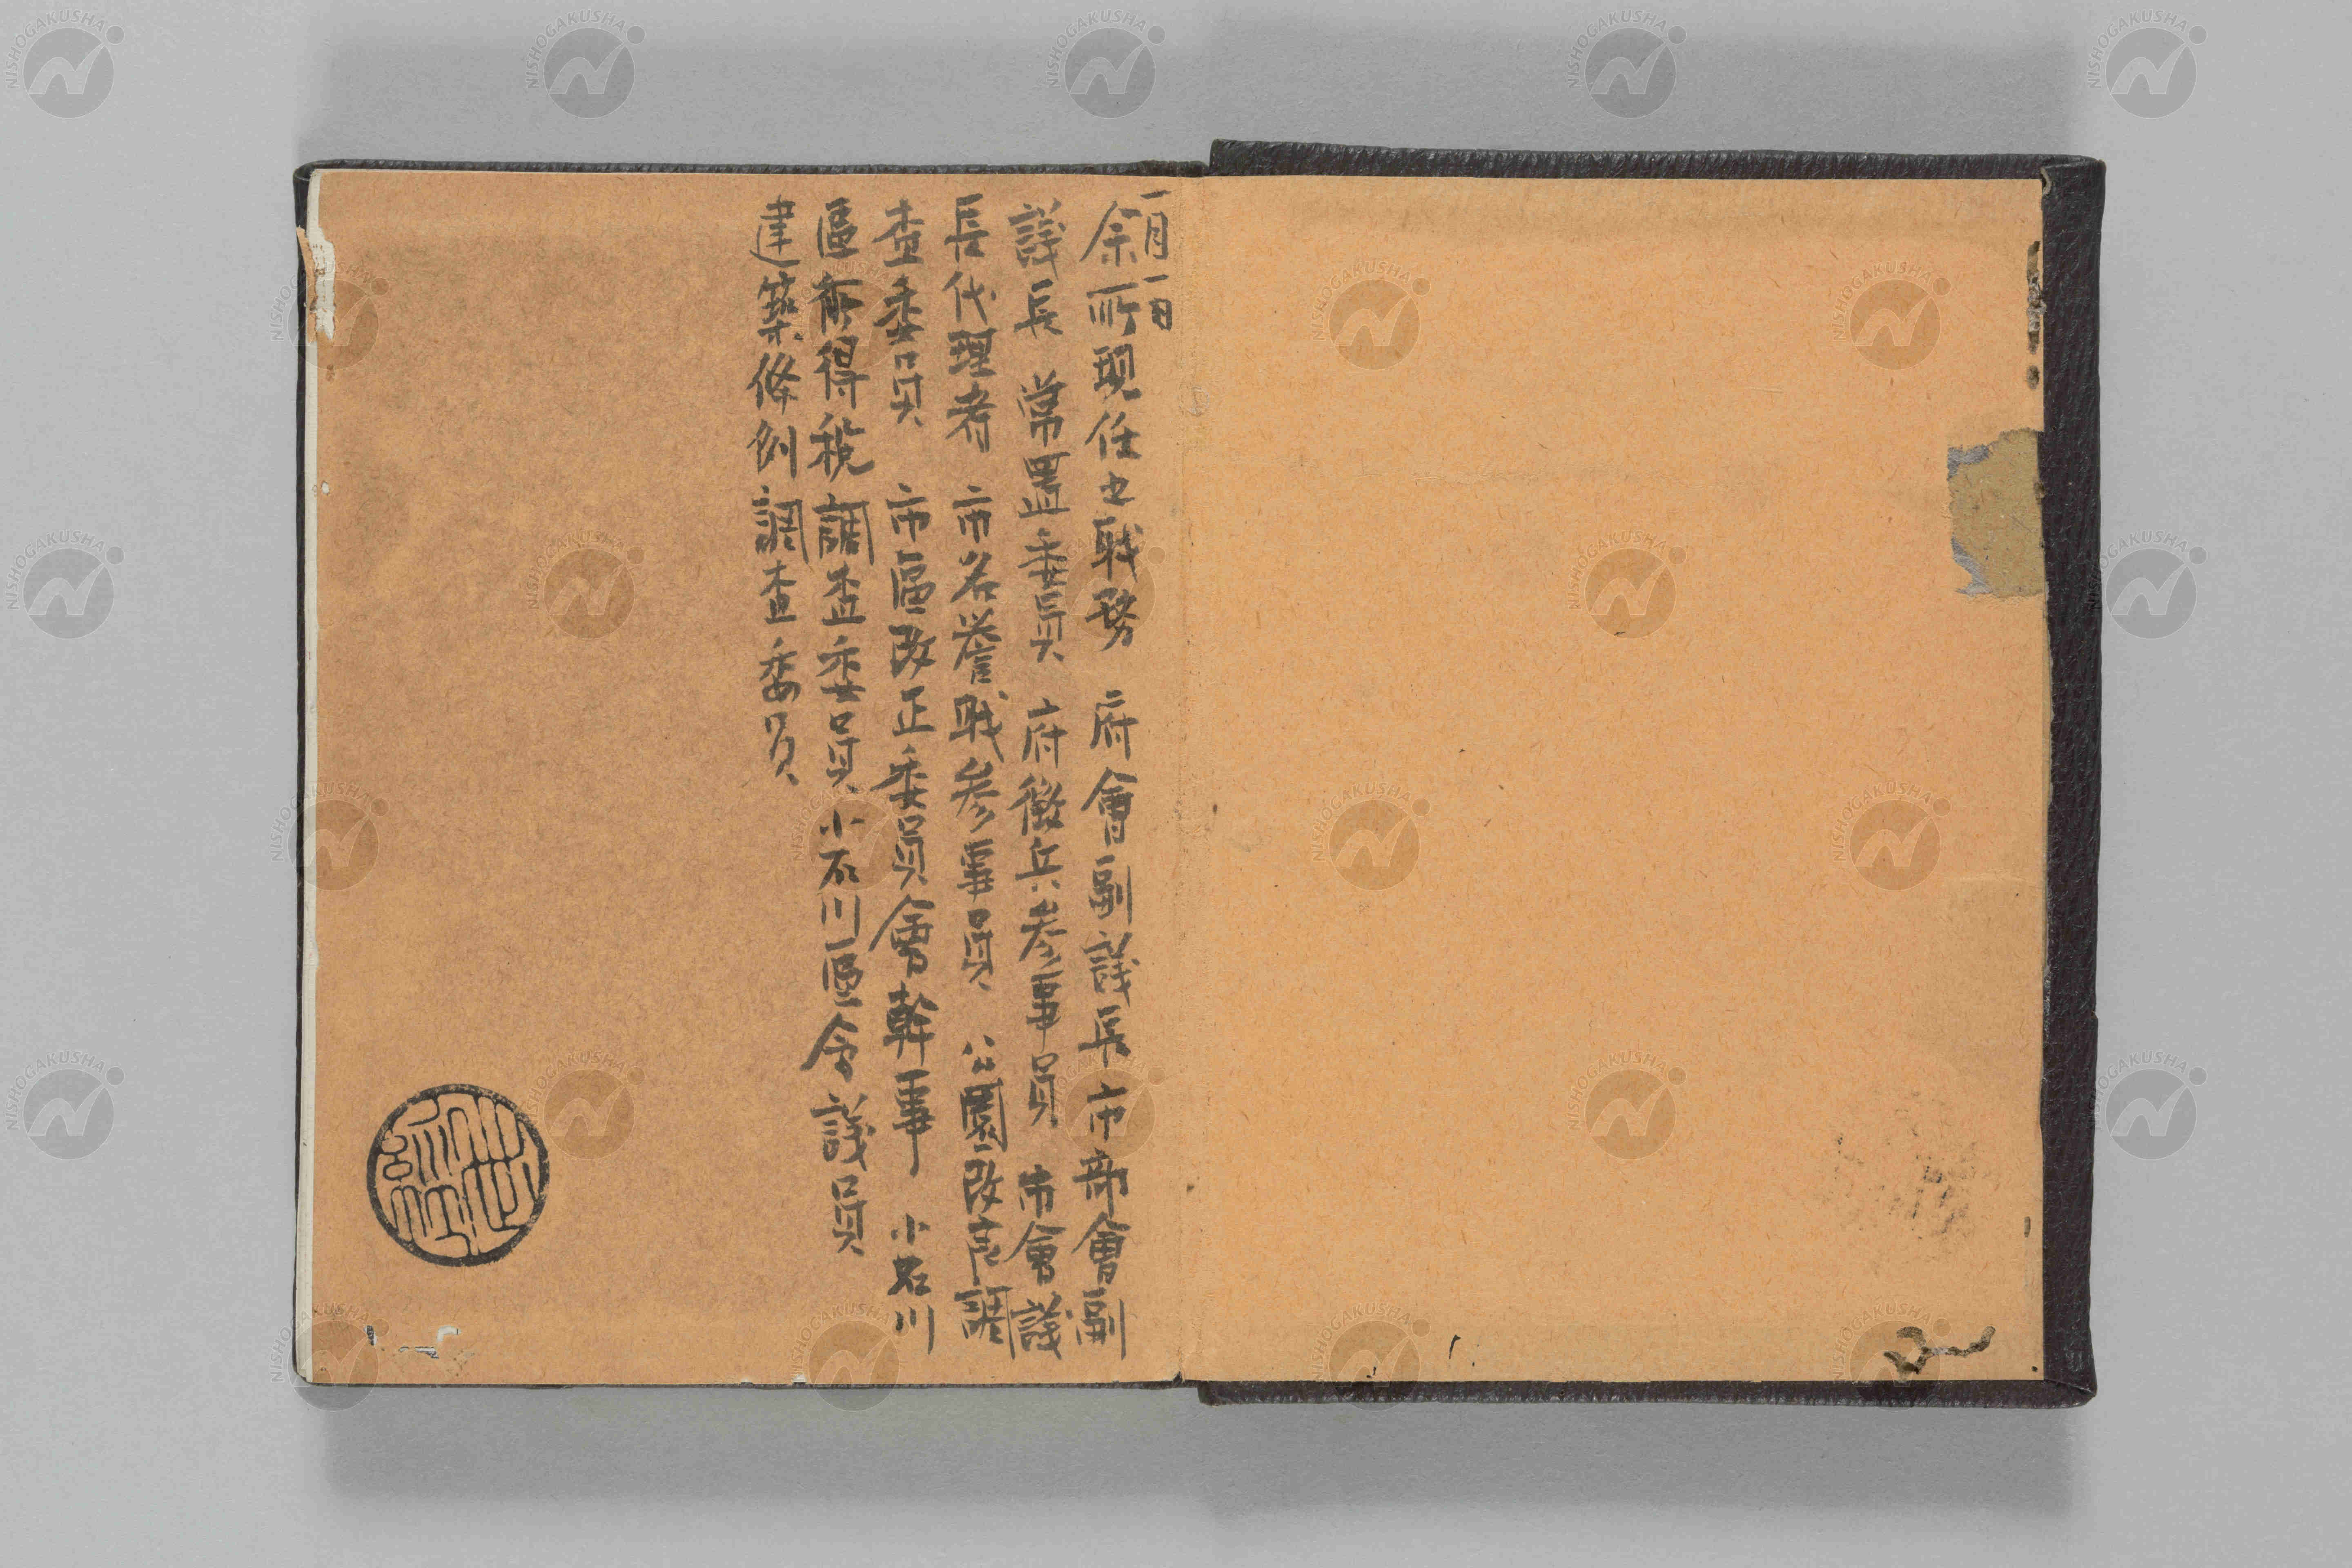 一月一日
余所現任之職務　府會副議長市部會副
議長　常置委員　府徴兵参事員　市會議
長代理者　市名誉職参事員　公園改良調
査委員　市區改正委員會幹事　小石川
區所得税調査委員　小石川區会議員
建築條例調査委員
NISHOGAKUSHA